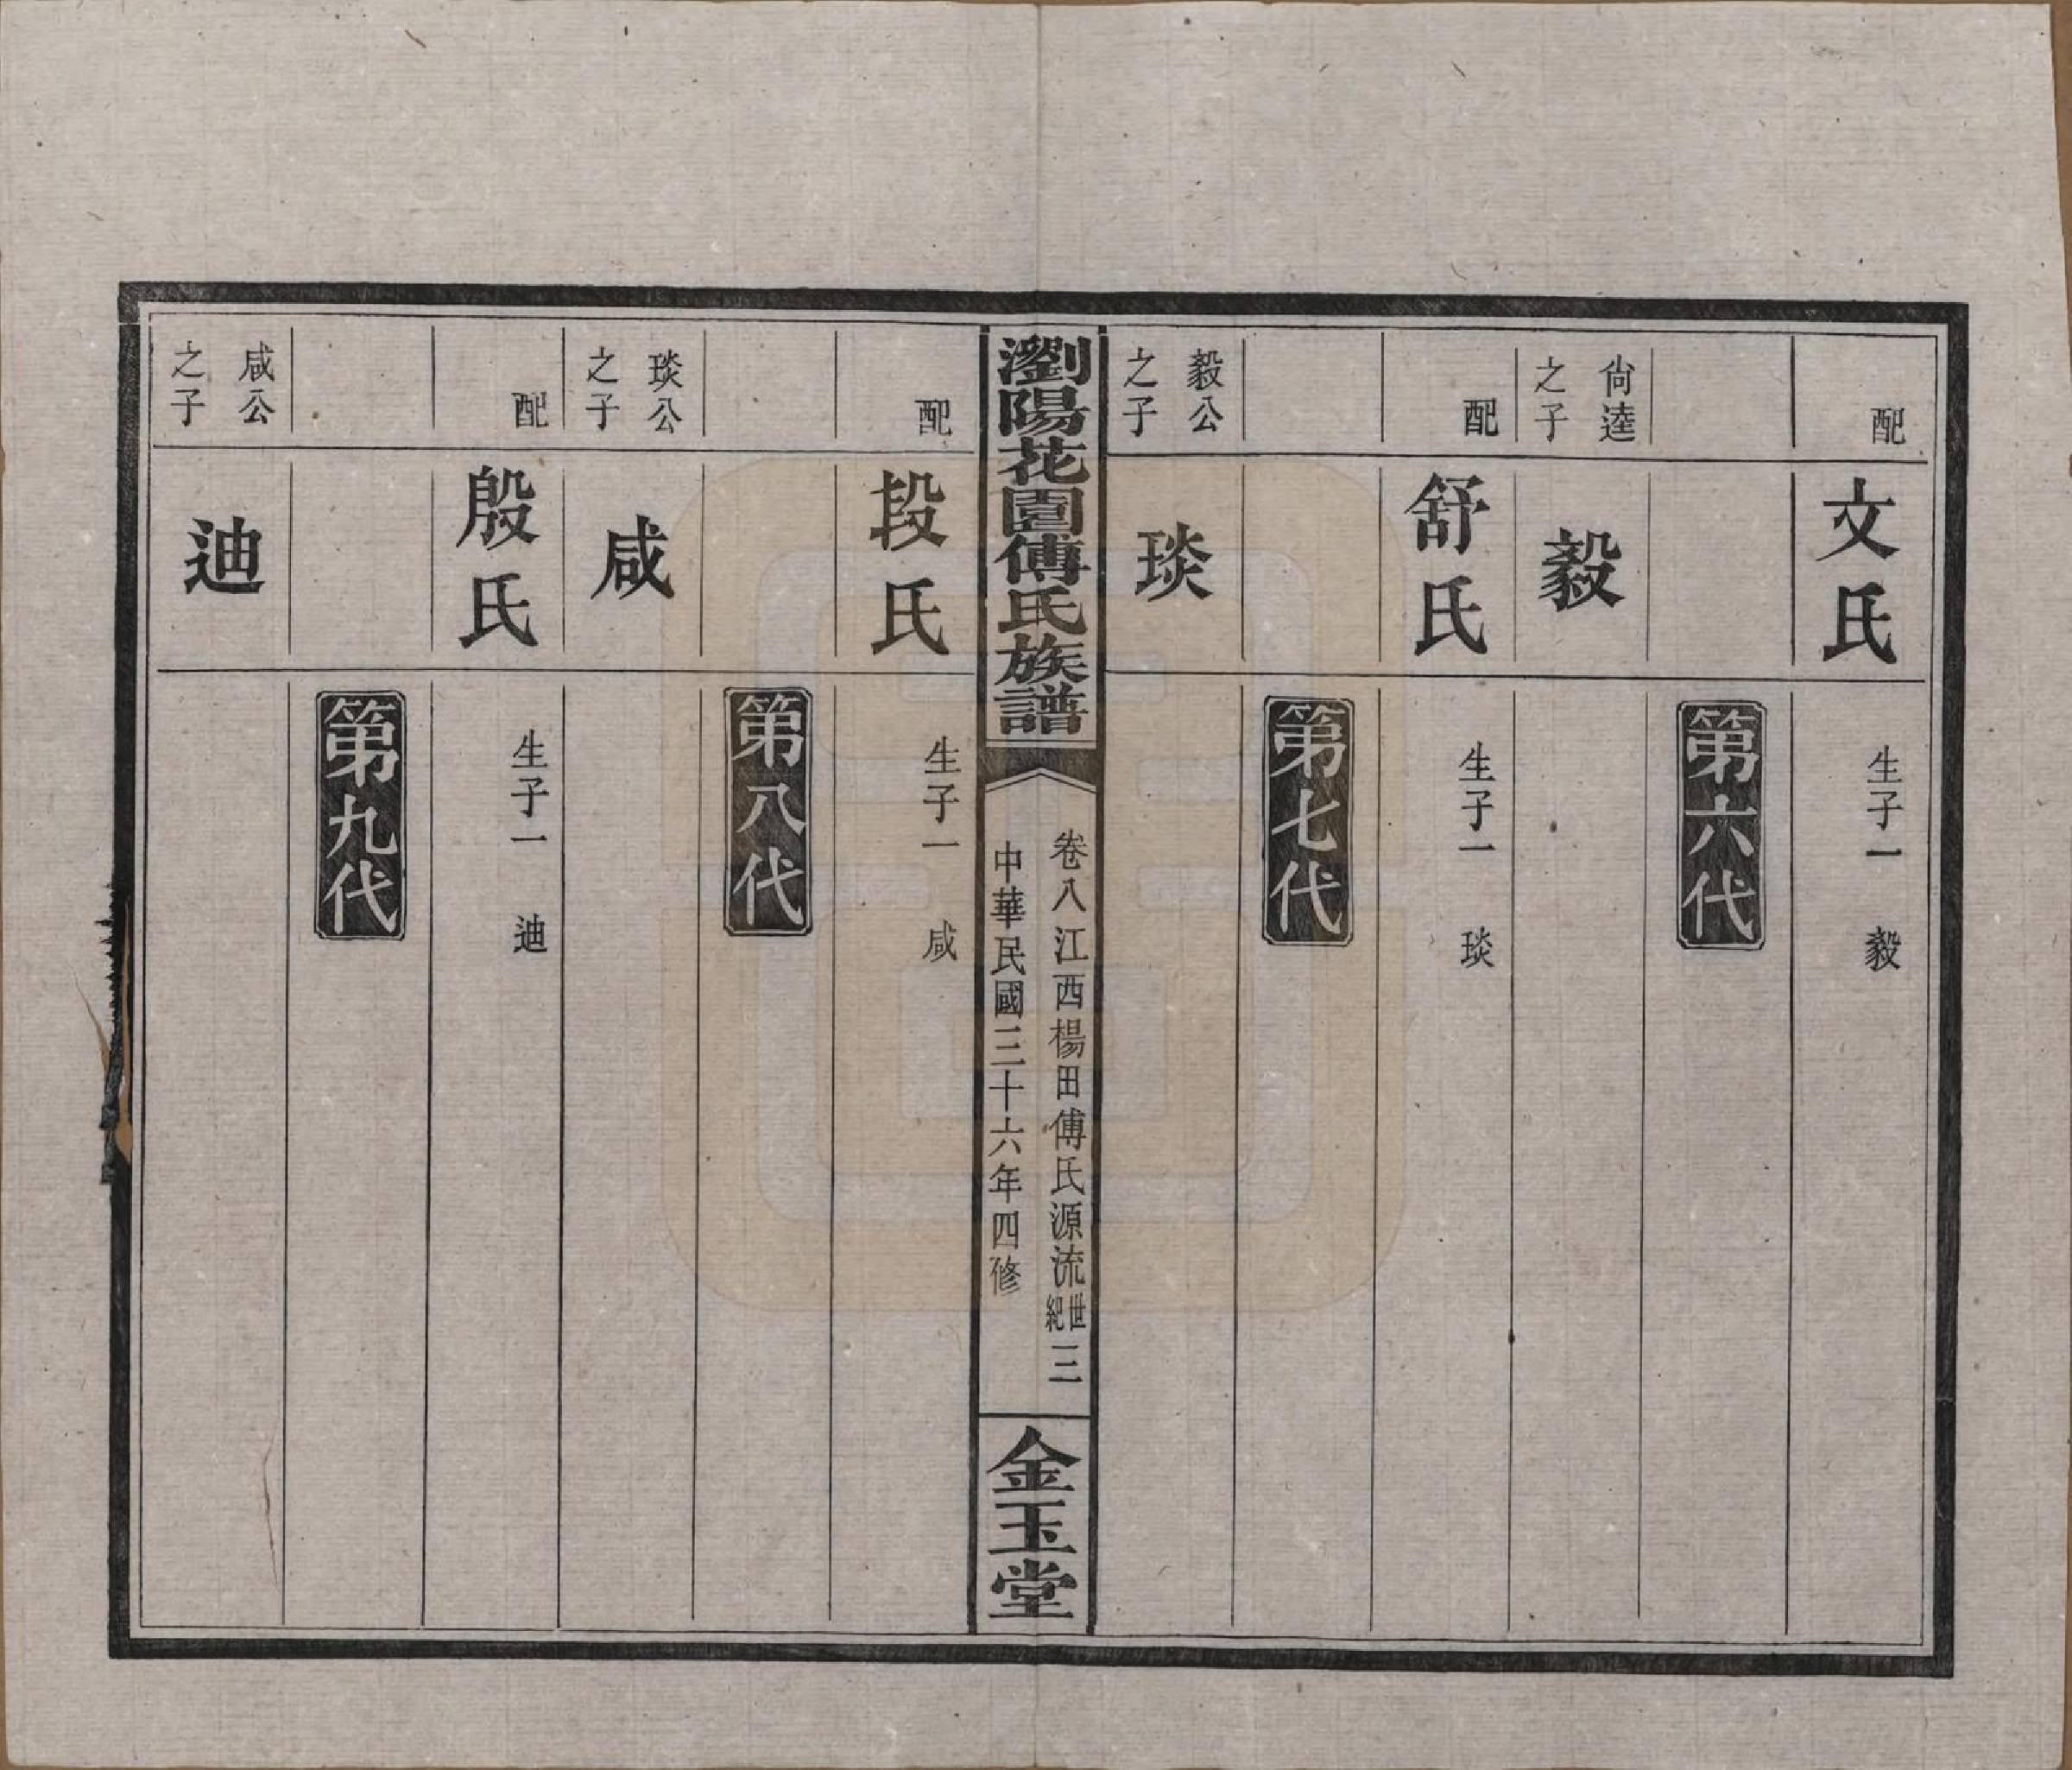 配
文氏
生子一 毅
第六代
尙逵之子
毅
配
舒氏
生子一 琰
第七代
毅公之子
琰
瀏陽花園傅氏族譜
卷八江西楊田傅氏源流世紀 三
中華民國三十六年四修
金玉堂
配
段氏
生子一 咸
第八代
琰公之子
咸
配
殷氏
生子一 迪
第九代
咸公之子
迪